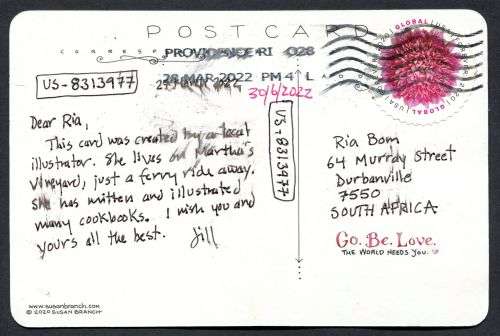 POSTCARD
PROVIDENCE RI 028
28 MAR 2022 PM 4 L
US-8313977
30/6/2022
Dear Ria,
This card was created by a local
illustrator. She lives on Martha's
Vineyard, just a ferry ride away.
She has written and illustrated
many cookbooks. I wish you and
yours all the best. Jill
US-8313977
GLOBAL
Ria Bom
64 Murray Street
Durbanville
7550
SOUTH AFRICA
Go. Be. Love.
THE WORLD NEEDS YOU.
www.susanbranch.com
© 2020 SUSAN BRANCH